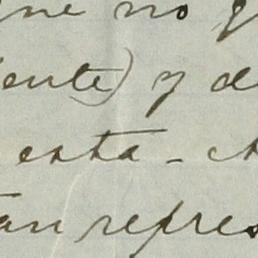 que no q
iente) y d
esta - ch
tan repres